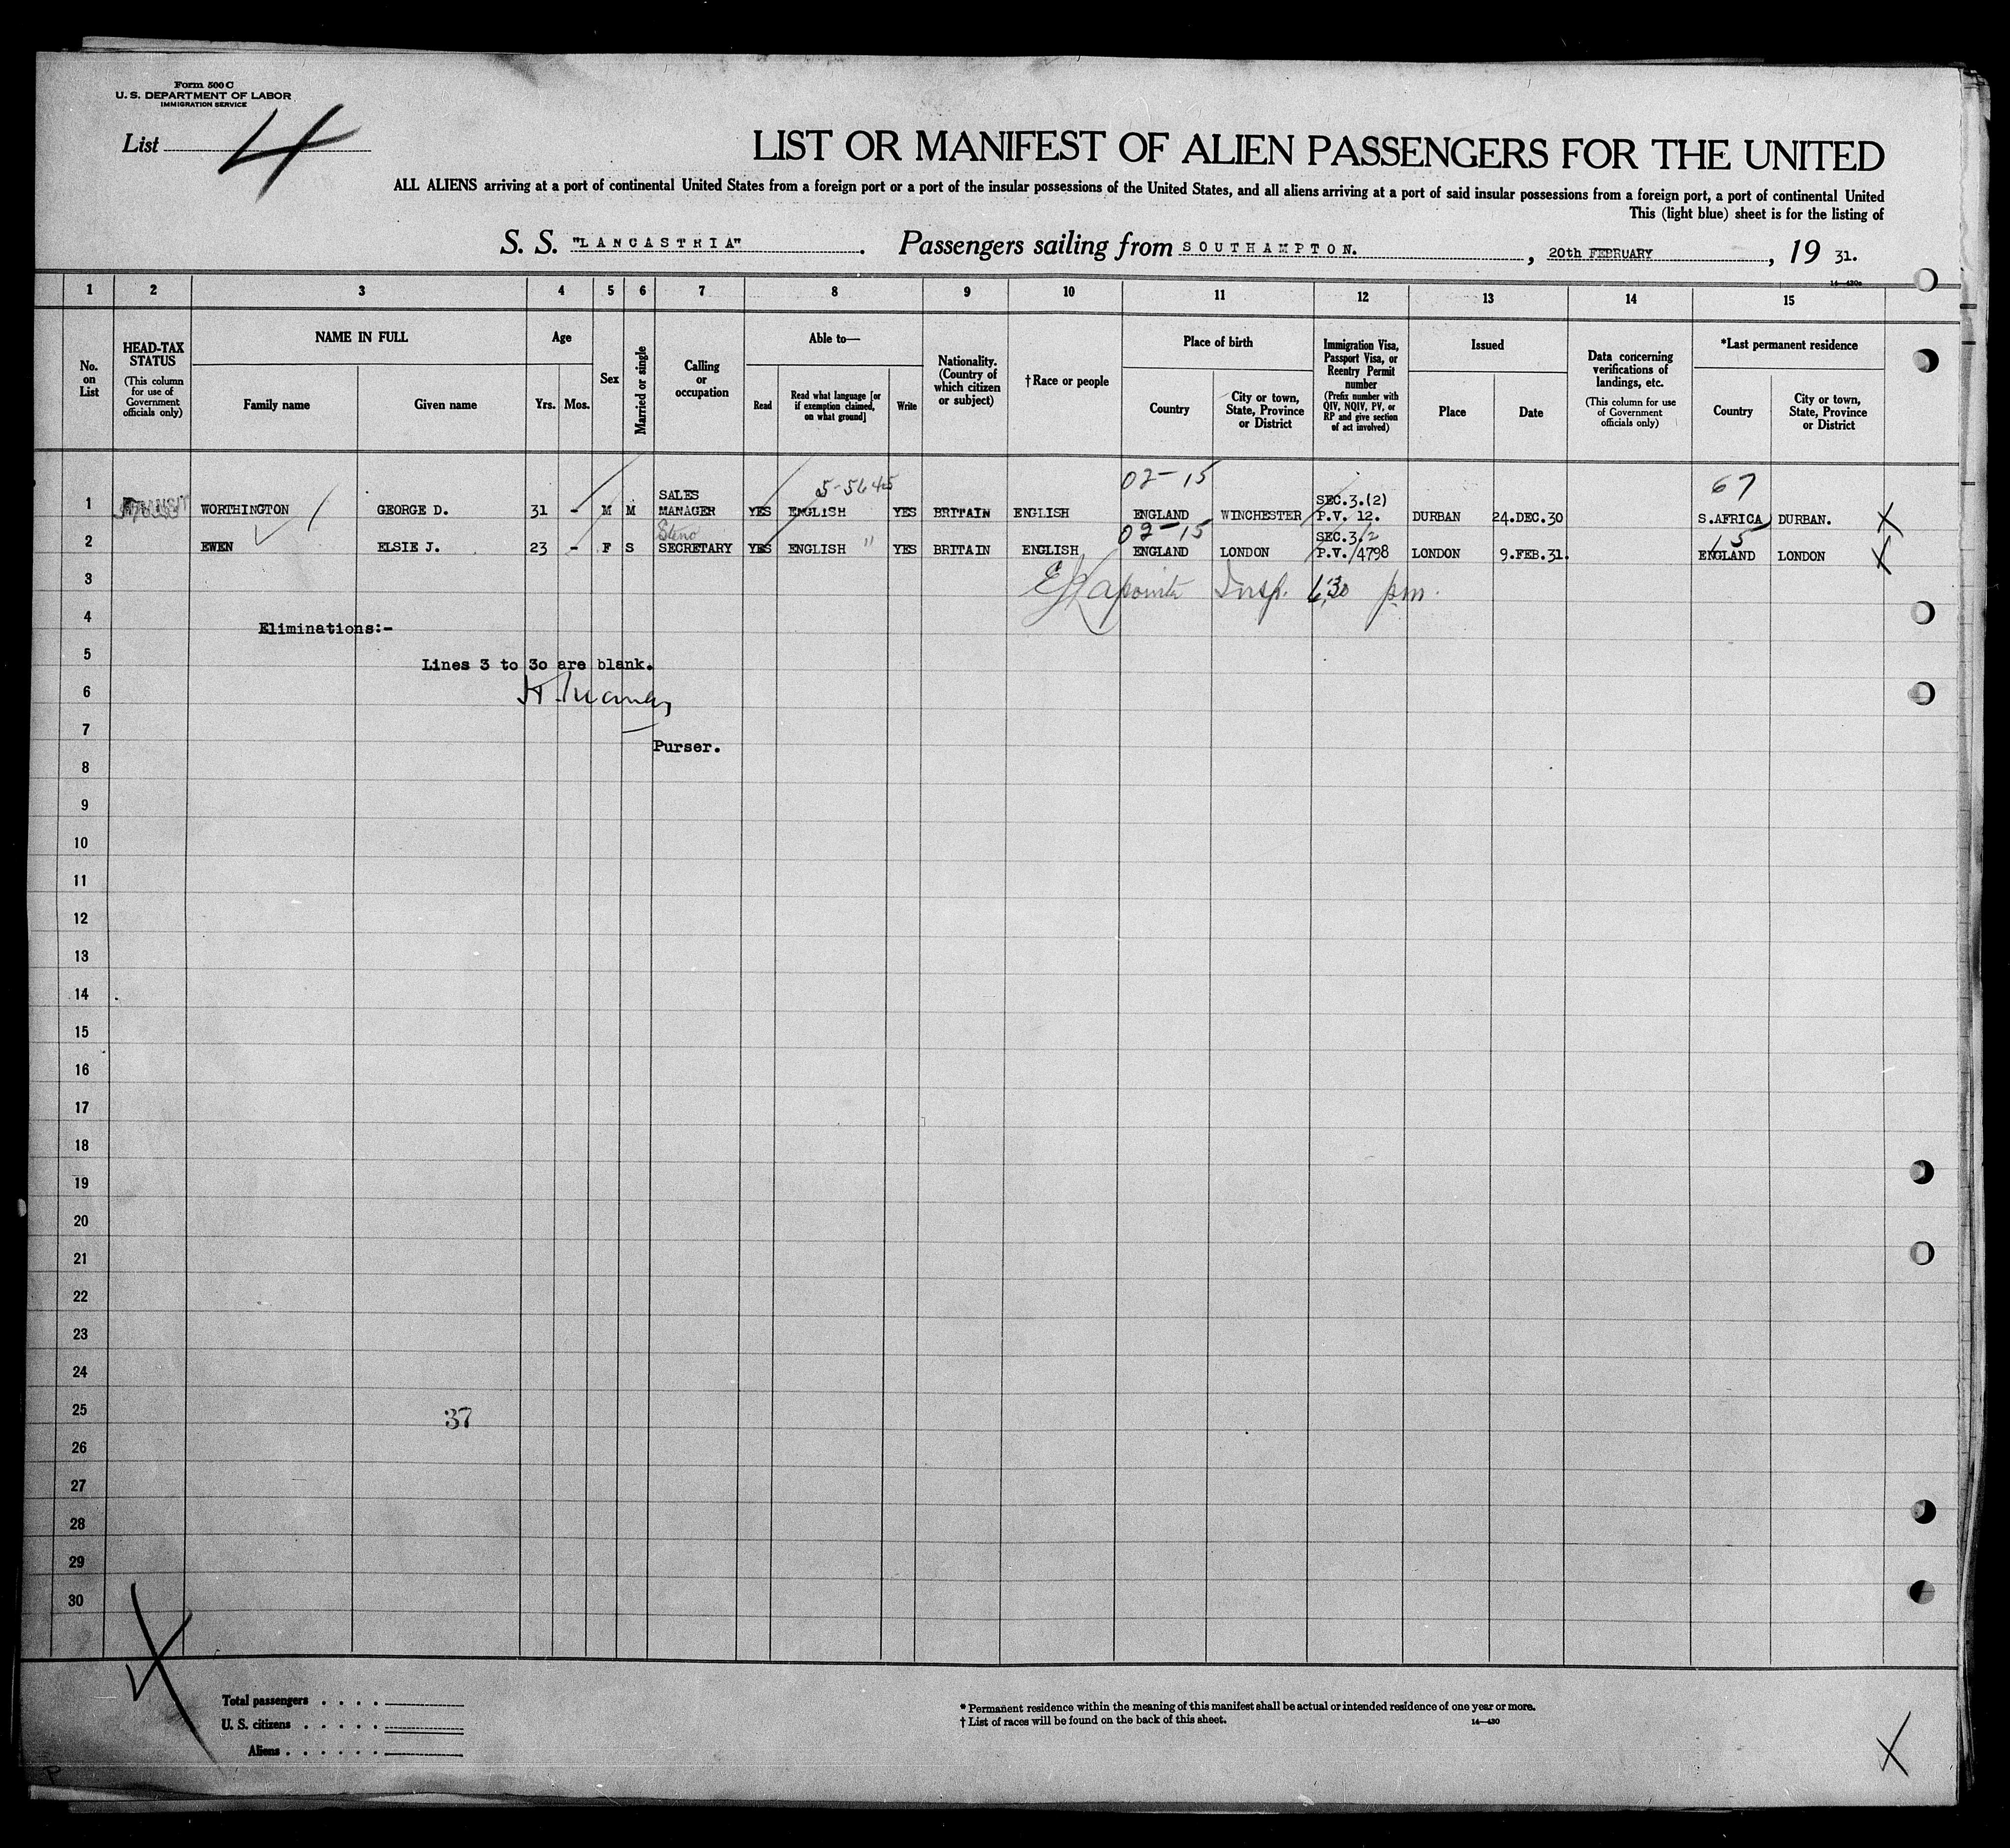 Form 500 C
U. S. DEPARTMENT OF LABOR
IMMIGRATION SERVICE
List 4
LIST OR MANIFEST OF ALIEN PASSENGERS FOR THE UNITED
ALL ALIENS arriving at a port of continental United States from a foreign port or a port of the insular possessions of the United States, and all aliens arriving at a port of said insular possessions from a foreign port, a port of continental United
This (light blue) sheet is for the listing of
S. S. "LANCASTRIA". Passengers sailing from SOUTHAMPTON., 20th FEBRUARY, 19 31.
14—430a
1 2 3 4 5 6 7 8 9 10 11 12 13 14 15
No. on List
HEAD-TAX STATUS
(This column for use of Government officials only)
NAME IN FULL
Family name
Given name
Age
Yrs. Mos.
Sex
Married or single
Calling or occupation
Able to—
Read
Read what language [or if exemption claimed, on what ground]
Write
Nationality. (Country of which citizen or subject)
† Race or people
Place of birth
Country
City or town, State, Province or District
Immigration Visa, Passport Visa, or Reentry Permit number
(Prefix number with QIV, NQIV, PV, or RP and give section of act involved)
Issued
Place
Date
Data concerning verifications of landings, etc.
(This column for use of Government officials only)
*Last permanent residence
Country
City or town, State, Province or District
02-15
67
5-5645
1 TRANSIT WORTHINGTON GEORGE D. 31 - M M SALES MANAGER YES ENGLISH YES BRITAIN ENGLISH ENGLAND WINCHESTER SEC.3.(2) P.V. 12. DURBAN 24.DEC.30 S.AFRICA DURBAN. X
Steno 02-15 15
2 EWEN ELSIE J. 23 - F S SECRETARY YES ENGLISH " YES BRITAIN ENGLISH ENGLAND LONDON SEC.3.2 P.V./4798 LONDON 9.FEB.31. ENGLAND LONDON X
3 EJLapointe Insp. 6.30 pm.
4 Eliminations:-
5 Lines 3 to 30 are blank.
6
7 Purser.
8
9
10
11
12
13
14
15
16
17
18
19
20
21
22
23
24
25 37
26
27
28
29
30
X
Total passengers . . . .
U. S. citizens . . . . .
Aliens . . . . . .
* Permanent residence within the meaning of this manifest shall be actual or intended residence of one year or more.
† List of races will be found on the back of this sheet.
14—430
X